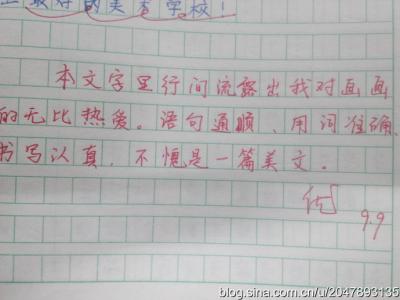 最好的美术学校！
本文字里行间流露出我对画画
的无比热爱。语句通顺、用词准确、
书写认真，不愧是一篇美文。
优
9.9
blog.sina.com.cn/u/2047893135